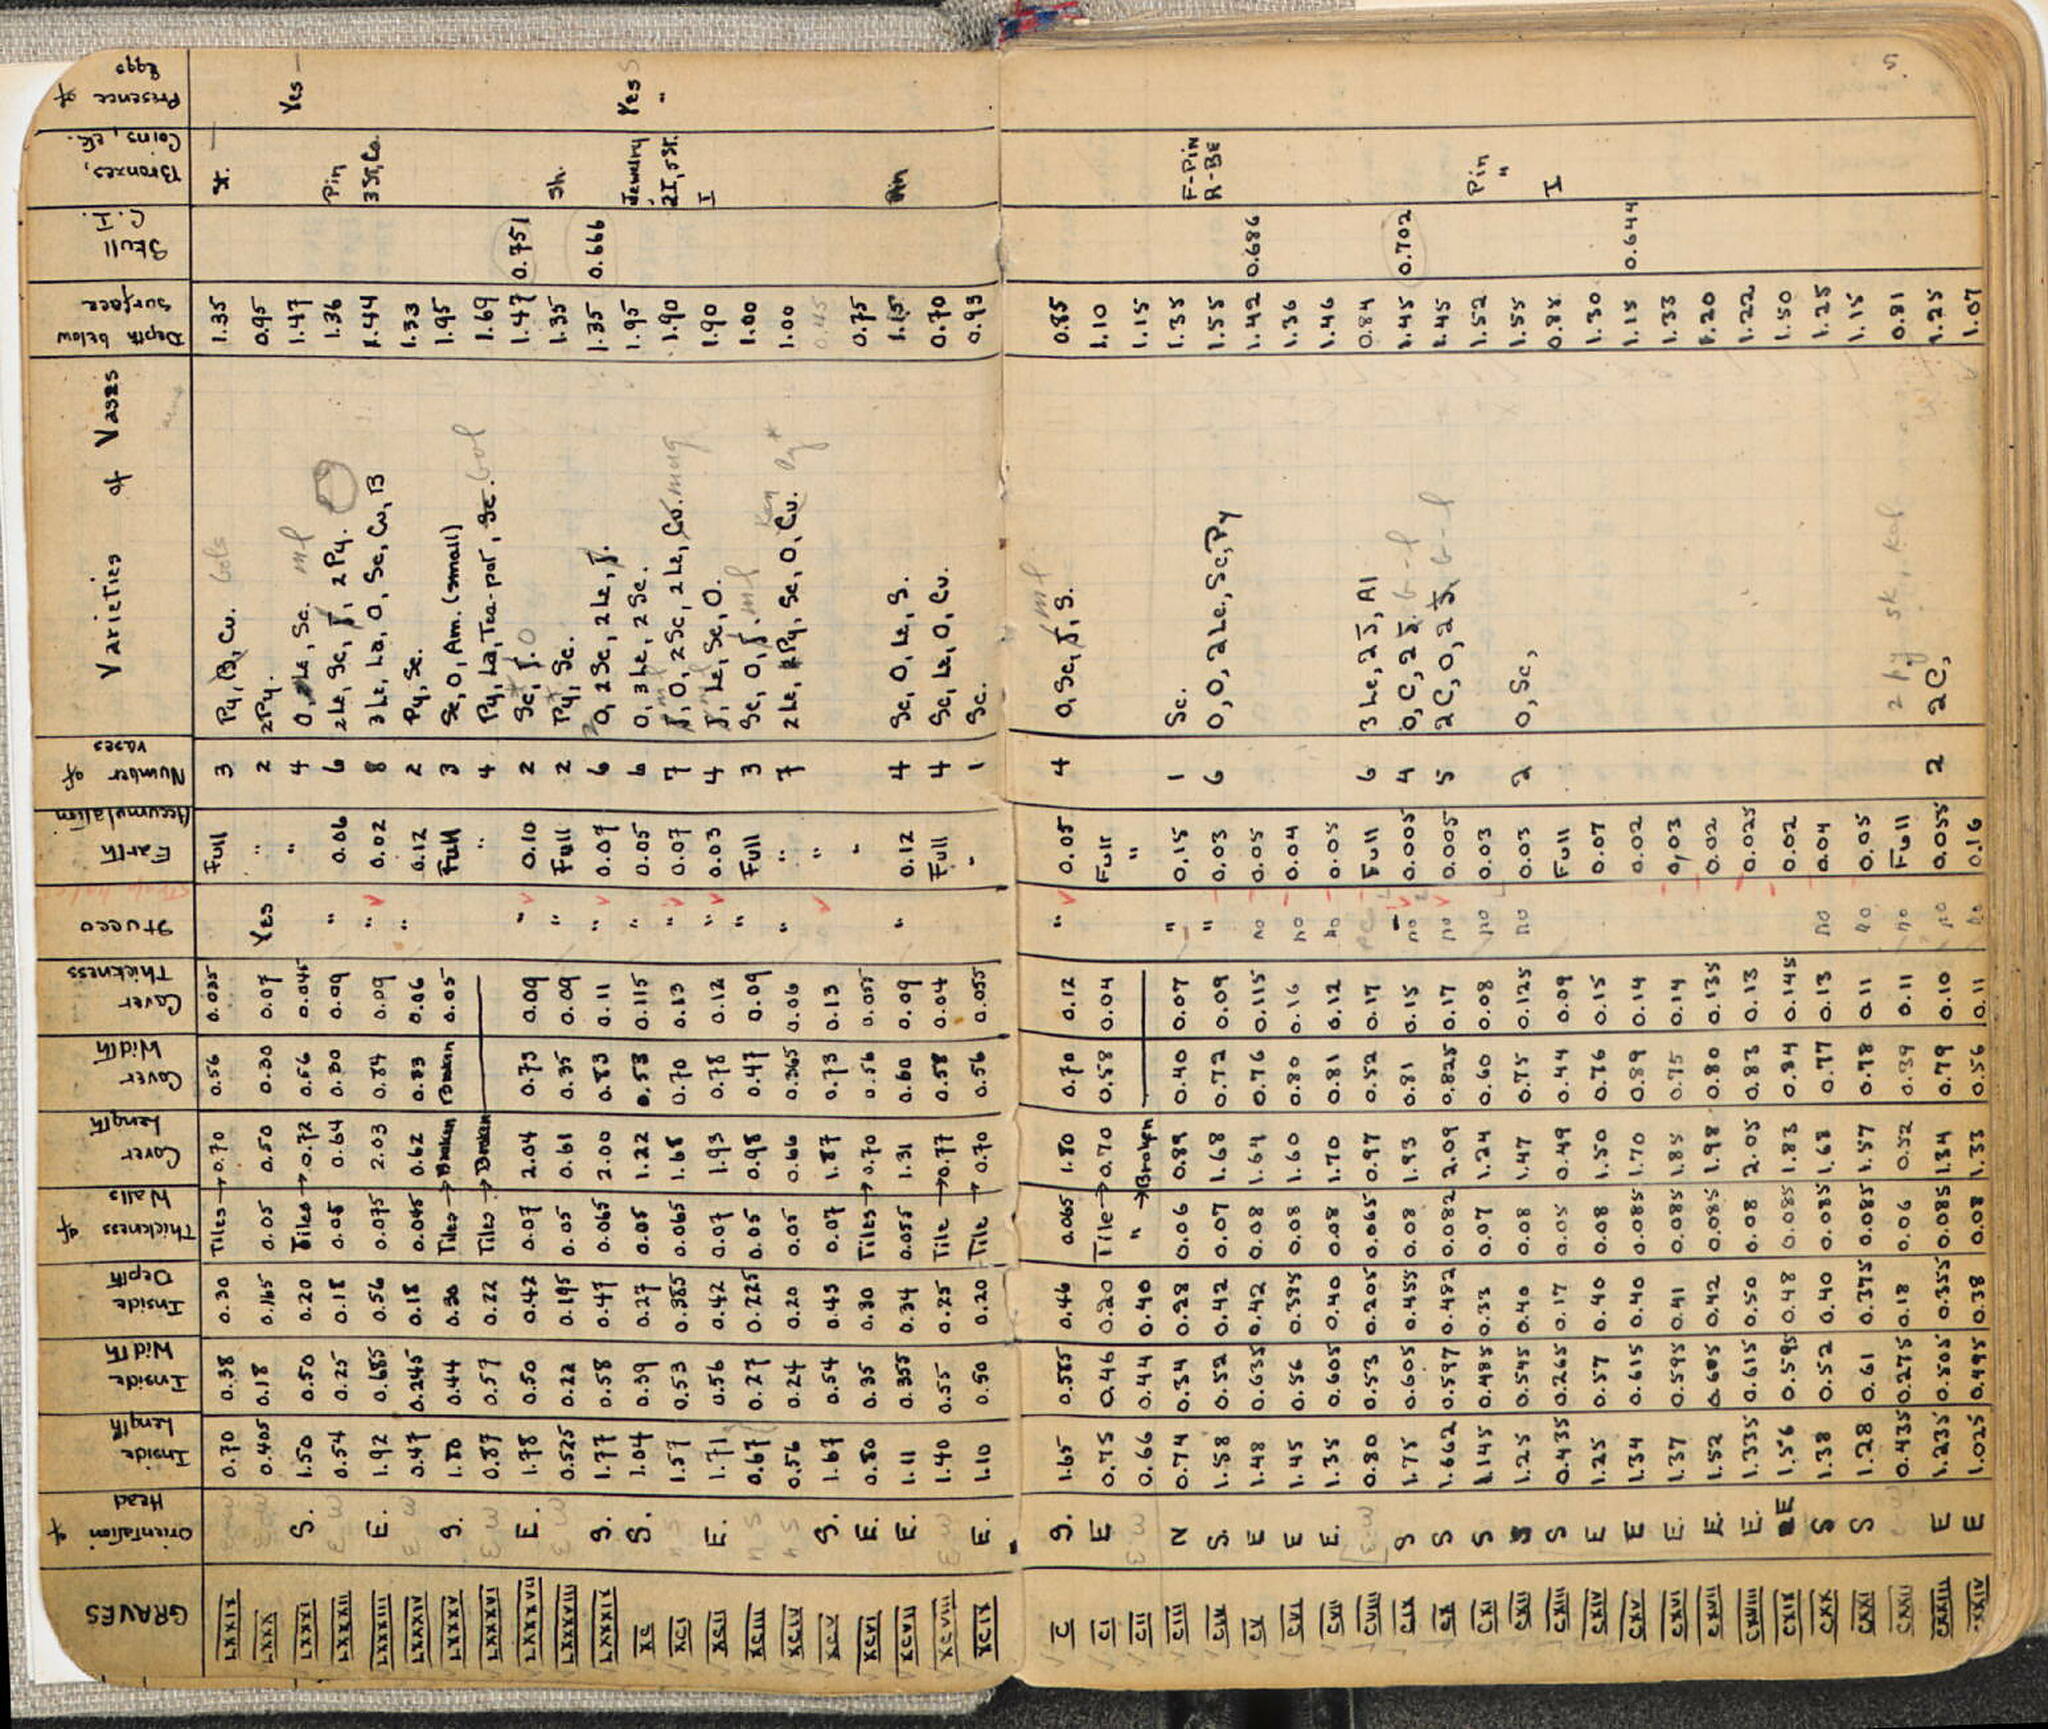 GRAVES | Orientation of Head | Inside Length | Inside Width | Inside Depth | Thickness of Walls | Cover Length | Cover Width | Cover Thickness | Stucco | Earth Accumulation | Number of vases | Varieties of Vases | Depth below surface | Skull C.I. | Bronzes, Coins, etc. | Presence of Eggs
LXXIX 0.70 0.38 0.30 Tiles → 0.70 0.56 0.035 Full 3 Py, B, Cu. bols 1.35 St.
LXXX 0.405 0.18 0.165 0.05 0.50 0.30 0.07 Yes " 2 2Py. 0.95
LXXXI S. 1.50 0.50 0.20 Tiles → 0.72 0.56 0.045 " 4 O, Le, Sc. 1.47 Yes
LXXXII E W 0.54 0.25 0.18 0.05 0.64 0.30 0.09 " 0.06 6 2Le, Sc, J, 2Py. 1.36 Pin
LXXXIII E. 1.92 0.685 0.56 0.075 2.03 0.84 0.09 " 0.02 8 3Le, La, O, Sc, Cu, B 1.44 3St, Co.
LXXXIV E W 0.47 0.245 0.18 0.045 0.62 0.33 0.06 " 0.12 2 Py, Sc. 1.33
LXXXV S. 1.80 0.44 0.30 Tiles → Broken Broken 0.05 Full 3 Sc, O, Am. (small) 1.95
LXXXVI E W 0.87 0.57 0.22 Tiles → Broken " 4 Py, La, Tea-pot, Sc. bol 1.69
LXXXVII E. 1.78 0.50 0.42 0.07 2.04 0.73 0.09 " 0.10 2 Sc, J. O 1.47 0.751
LXXXVIII E W 0.525 0.22 0.195 0.05 0.61 0.35 0.09 " Full 2 Py, Sc. 1.35 Sh.
LXXXIX S. 1.77 0.58 0.47 0.065 2.00 0.83 0.11 " 0.07 6 O, 2Sc, 2Le, J. 1.35 0.666
XC S. 1.04 0.39 0.27 0.05 1.22 0.53 0.115 " 0.05 6 O, 3Le, 2Sc. 1.95 Jewelry Yes
XCI n S 1.57 0.53 0.385 0.065 1.68 0.70 0.13 " 0.07 7 J, O, 2Sc, 2Le, Cu. mug 1.90 2I, 5St. "
XCII E. 1.71 0.56 0.42 0.07 1.93 0.78 0.12 " 0.03 4 J, Le, Sc, O. 1.90 I
XCIII n S 0.67 0.27 0.225 0.05 0.98 0.47 0.09 " Full 3 Sc, O, J. 1.00
XCIV n S 0.56 0.24 0.20 0.05 0.66 0.365 0.06 " " 7 2Le, Py, Sc, O, Cu. 1.00
XCV S. 1.67 0.54 0.43 0.07 1.87 0.73 0.13 " 0.45
XCVI E. 0.80 0.35 0.30 Tiles → 0.70 0.56 0.055 " 0.75
XCVII E. 1.11 0.355 0.34 0.055 1.31 0.60 0.09 " 0.12 4 Sc, O, Le, S. 1.15 Pin
XCVIII E W 1.40 0.55 0.25 Tile → 0.77 0.58 0.04 Full 4 Sc, Le, O, Cu. 0.70
XCIX E. 1.10 0.50 0.20 Tile → 0.70 0.56 0.055 " 1 Sc. 0.93
5.
C S. 1.65 0.585 0.46 0.065 1.80 0.70 0.12 " 0.05 4 O, Sc, J, S. 0.85
CI E 0.75 0.46 0.20 Tile → 0.70 0.58 0.04 Full 1.10
CII E W 0.66 0.44 0.40 " → Broken " 1.15
CIII N 0.74 0.34 0.28 0.06 0.89 0.40 0.07 " 0.15 1 Sc. 1.35
CIV S. 1.58 0.52 0.42 0.07 1.68 0.72 0.09 " 0.03 6 O, O, 2Le, Sc, Py 1.55 F-Pin R-Be
CV E 1.48 0.635 0.42 0.08 1.64 0.76 0.115 no 0.05 1.42 0.686
CVI E 1.45 0.56 0.395 0.08 1.60 0.80 0.16 no 0.04 1.36
CVII E. 1.35 0.605 0.40 0.08 1.70 0.81 0.12 no 0.05 1.46
CVIII E-W 0.80 0.53 0.205 0.065 0.97 0.52 0.17 Full 6 3Le, 2J, Al 0.84
CIX S 1.75 0.605 0.455 0.08 1.93 0.81 0.15 no 0.005 4 O, C, 2J. 1.45 0.702
CX S 1.662 0.597 0.482 0.082 2.09 0.825 0.17 no 0.005 5 2C, O, 2J. 1.45
CXI S 1.145 0.485 0.33 0.07 1.24 0.60 0.08 no 0.03 1.52 Pin
CXII S 1.25 0.545 0.40 0.08 1.47 0.75 0.125 no 0.03 2 O, Sc, 1.55 "
CXIII S 0.435 0.265 0.17 0.05 0.49 0.44 0.09 Full 0.85 I
CXIV E 1.25 0.57 0.40 0.08 1.50 0.76 0.15 0.07 1.30
CXV E 1.34 0.615 0.40 0.085 1.70 0.89 0.14 0.02 1.15 0.644
CXVI E. 1.37 0.595 0.41 0.085 1.85 0.75 0.14 0.03 1.33
CXVII E. 1.52 0.605 0.42 0.085 1.98 0.80 0.135 0.02 1.20
CXVIII E. 1.335 0.615 0.50 0.08 2.05 0.83 0.13 0.025 1.22
CXIX E 1.56 0.595 0.48 0.085 1.83 0.84 0.145 0.02 1.50
CXX S 1.38 0.52 0.40 0.085 1.68 0.77 0.13 no 0.04 1.25
CXXI S 1.28 0.61 0.375 0.085 1.57 0.78 0.11 no 0.05 1.15
CXXII 0.435 0.275 0.18 0.06 0.52 0.39 0.11 no Full 0.81
CXXIII E 1.235 0.505 0.355 0.085 1.34 0.79 0.10 no 0.055 2 2C, 1.25
CXXIV E 1.025 0.495 0.38 0.08 1.33 0.56 0.11 no 0.16 1.07